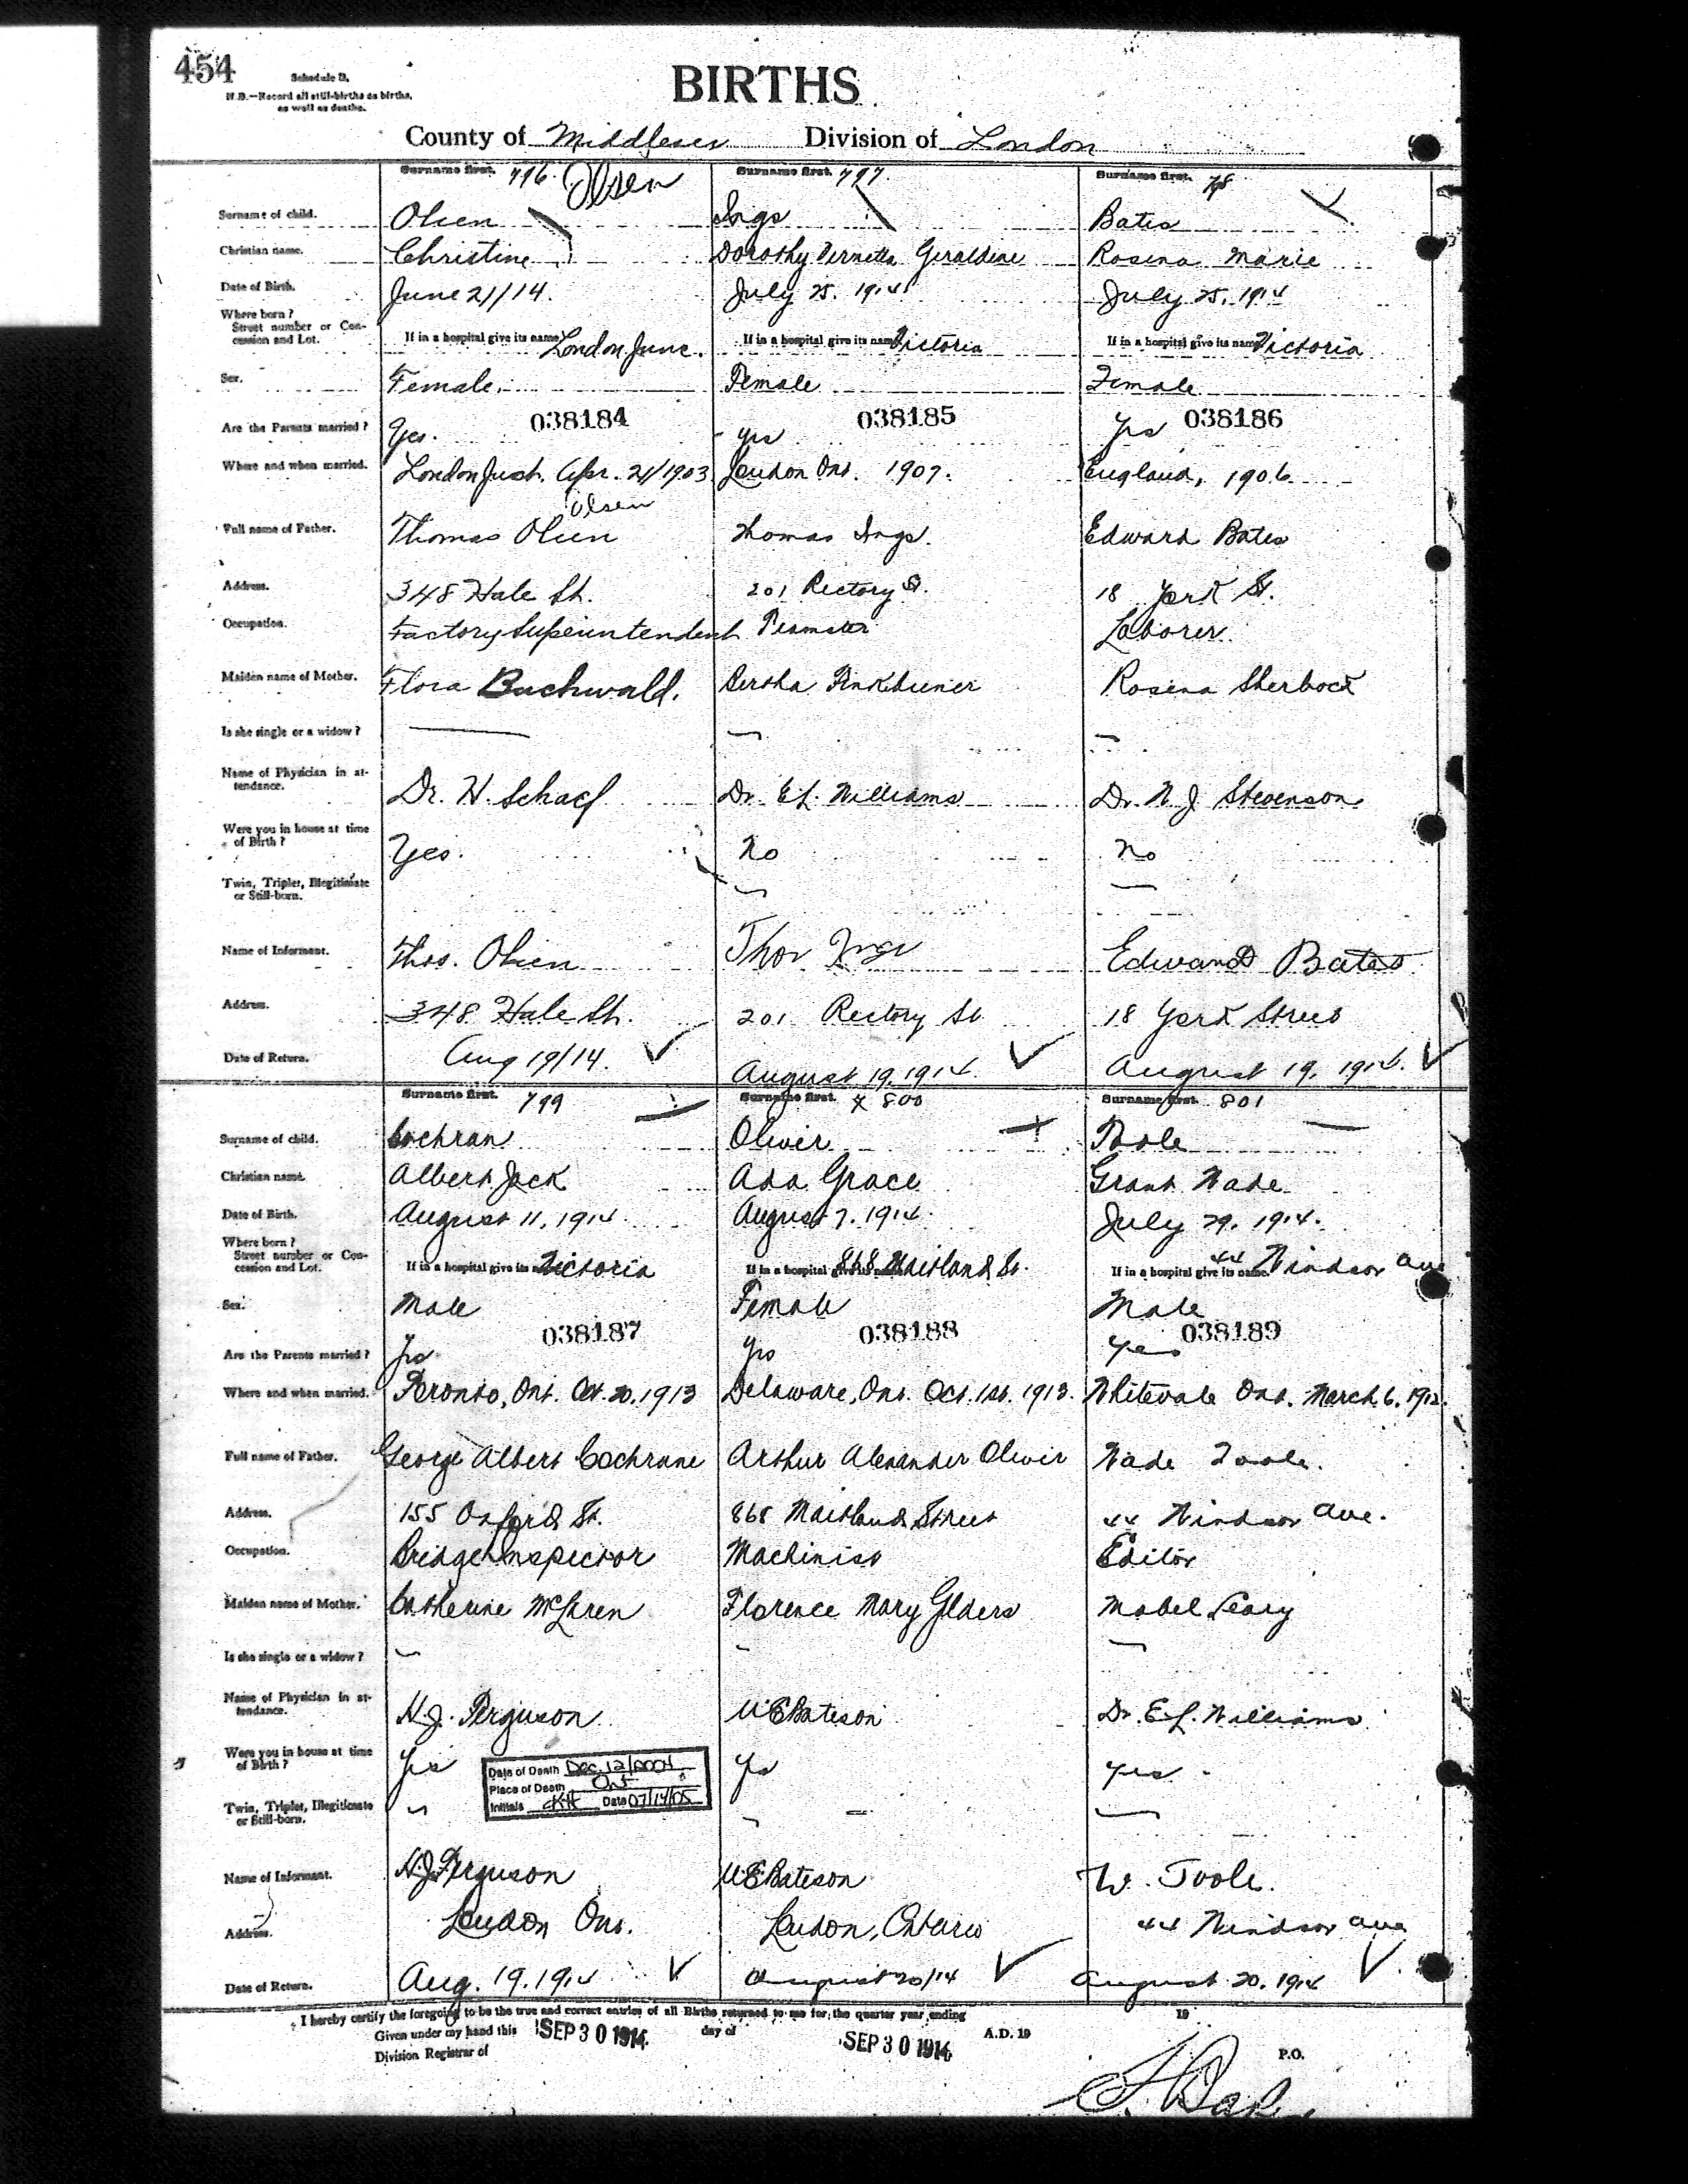 454
Schedule B.
N.B.—Record all still-births as births, as well as deaths.
BIRTHS
County of Middlesex Division of London
Surname first. 796. Olsen Surname first. 797. Surname first. 798
Surname of child. Olsen Ings Bates
Christian name. Christine Dorothy Geraldine Rosena Marie
Date of Birth. June 21/14. July 25. 1914 July 25. 1914
Where born?
Street number or Concession and Lot. If in a hospital give its name London Junc. If in a hospital give its name Victoria If in a hospital give its name Victoria
Sex. Female. Female Female
038184 038185 038186
Are the Parents married? Yes. Yes Yes
Where and when married. London Junct. Apr. 21/1903 London Ont. 1907. England, 1906.
Olsen
Full name of Father. Thomas Olsen Thomas Ings. Edward Bates
Address. 348 Hale St. 201 Rectory St. 18 York St.
Occupation. Factory Superintendent Teamster Laborer.
Maiden name of Mother. Flora Buchwald. Bertha Rosena
Is she single or a widow? — — —
Name of Physician in attendance. Dr. H. Schaef Dr. E L. Williams Dr. W. J. Stevenson
Were you in house at time of Birth? Yes. No No
Twin, Triplet, Illegitimate or Still-born. — —
Name of Informant. Thos. Olsen Thos Ings Edward Bates
Address. 348 Hale St. 201 Rectory St 18 York Street
Date of Return. Aug 19/14. August 19. 1914. August 19. 1914.
Surname first. 799 Surname first. x 800 Surname first. 801
Surname of child. Cochran Oliver Toole
Christian name. Albert Jack Ada Grace Grant Wade
Date of Birth. August 11, 1914. August 7. 1914. July 29. 1914.
Where born?
Street number or Concession and Lot. If in a hospital give its name Victoria If in a hospital give its name 868 Maitland St. If in a hospital give its name. 44 Windsor Ave
Sex. Male Female Male
038187 038188 038189
Are the Parents married? Yes Yes Yes
Where and when married. Toronto, Ont. Oct. 20. 1913 Delaware, Ont. Oct. 1st. 1913. Whitevale Ont. March. 6. 1912.
Full name of Father. George Albert Cochrane Arthur Alexander Oliver Wade Toole.
Address. 155 Oxford St. 868 Maitland Street 44 Windsor Ave.
Occupation. Bridge Inspector Machinist Editor
Maiden name of Mother. Catherine McLaren Florence Mary Mabel Leary
Is she single or a widow? — — —
Name of Physician in attendance. H. J. Ferguson W E Bateson Dr. E. L. Williams
Were you in house at time of Birth? Yes Yes Yes
Date of Death Dec 12/2004
Place of Death Ont
Initials KH Date 07/14/05
Twin, Triplet, Illegitimate or Still-born. — — —
Name of Informant. H. J. Ferguson W E Bateson W. Toole.
Address. London Ont. London, Ontario 44 Windsor Ave
Date of Return. Aug. 19. 1914 August 20/14 August 20. 1914
I hereby certify the foregoing to be the true and correct entries of all Births returned to me for the quarter year ending 19
Given under my hand this SEP 30 1914 day of SEP 30 1914 A.D. 19
Division Registrar of P.O.